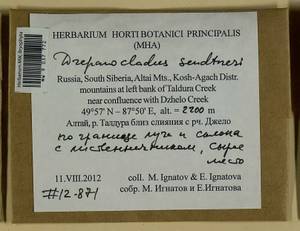 HERBARIUM HORTI BOTANICI PRINCIPALIS
(MHA)
Drepanocladus sendtneri
Russia, South Siberia, Altai Mts., Kosh-Agach Distr.
mountains at left bank of Taldura Creek
near confluence with Dzhelo Creek
49°57' N – 87°50' E, alt. = 2200 m
Алтай, р. Талдура близ слияния с рч. Джело
по границе луга и склона
с лиственничником, сырое
место
11.VIII.2012 coll. M. Ignatov & E. Ignatova
#12-871 собр. М. Игнатов и Е.Игнатова
Herbarium MW, Bryophyta